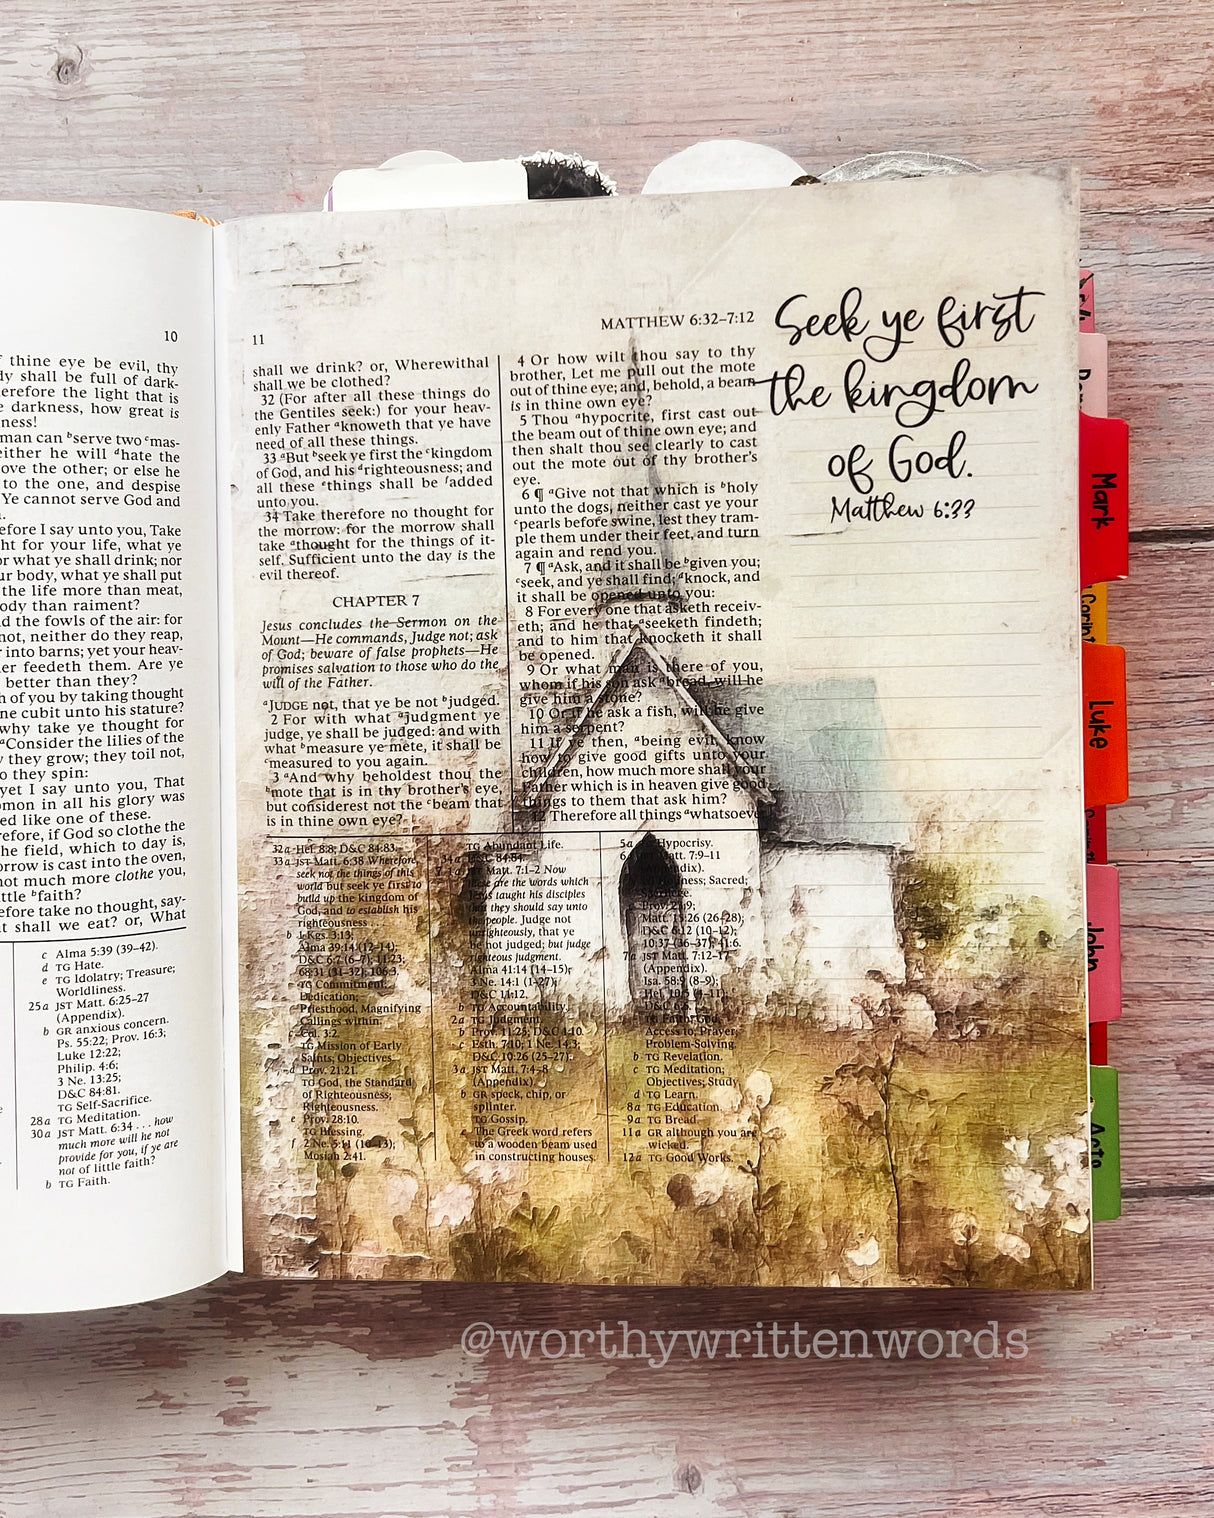 10
f thine eye be evil, thy
dy shall be full of dark-
erefore the light that is
e darkness, how great is
ness!
man can bserve two cmas-
either he will dhate the
ove the other; or else he
to the one, and despise
Ye cannot serve God and
efore I say unto you, Take
ht for your life, what ye
or what ye shall drink; nor
ur body, what ye shall put
the life more than meat,
ody than raiment?
d the fowls of the air: for
not, neither do they reap,
r into barns; yet your heav-
er feedeth them. Are ye
better than they?
h of you by taking thought
ne cubit unto his stature?
why take ye thought for
aConsider the lilies of the
y they grow; they toil not,
o they spin:
yet I say unto you, That
omon in all his glory was
ed like one of these.
refore, if God so clothe the
he field, which to day is,
orrow is cast into the oven,
not much more clothe you,
ttle bfaith?
efore take no thought, say-
t shall we eat? or, What
c Alma 5:39 (39–42).
d TG Hate.
e TG Idolatry; Treasure;
Worldliness.
25a JST Matt. 6:25–27
(Appendix).
b GR anxious concern.
Ps. 55:22; Prov. 16:3;
Luke 12:22;
Philip. 4:6;
3 Ne. 13:25;
D&C 84:81.
TG Self-Sacrifice.
28a TG Meditation.
30a JST Matt. 6:34 . . . how
much more will he not
provide for you, if ye are
not of little faith?
b TG Faith.
11
MATTHEW 6:32–7:12
shall we drink? or, Wherewithal
shall we be clothed?
32 (For after all these things do
the Gentiles seek:) for your heav-
enly Father aknoweth that ye have
need of all these things.
33 aBut bseek ye first the ckingdom
of God, and his drighteousness; and
all these ethings shall be fadded
unto you.
34 Take therefore no thought for
the morrow: for the morrow shall
take athought for the things of it-
self. Sufficient unto the day is the
evil thereof.
CHAPTER 7
Jesus concludes the Sermon on the
Mount—He commands, Judge not; ask
of God; beware of false prophets—He
promises salvation to those who do the
will of the Father.
aJUDGE not, that ye be not bjudged.
2 For with what ajudgment ye
judge, ye shall be judged: and with
what bmeasure ye mete, it shall be
cmeasured to you again.
3 aAnd why beholdest thou the
bmote that is in thy brother's eye,
but considerest not the cbeam that
is in thine own eye?
4 Or how wilt thou say to thy
brother, Let me pull out the mote
out of thine eye; and, behold, a beam
is in thine own eye?
5 Thou ahypocrite, first cast out
the beam out of thine own eye; and
then shalt thou see clearly to cast
out the mote out of thy brother's
eye.
6 ¶ aGive not that which is bholy
unto the dogs, neither cast ye your
cpearls before swine, lest they tram-
ple them under their feet, and turn
again and rend you.
7 ¶ aAsk, and it shall be bgiven you;
cseek, and ye shall find; dknock, and
it shall be opened unto you:
8 For every one that asketh receiv-
eth; and he that aseeketh findeth;
and to him that knocketh it shall
be opened.
9 Or what man is there of you,
whom if his son ask abread, will he
give him a stone?
10 Or if he ask a fish, will he give
him a serpent?
11 If ye then, abeing evil, know
how to give good gifts unto your
children, how much more shall your
Father which is in heaven give good
things to them that ask him?
12 Therefore all things awhatsoever
32a Hel. 8:8; D&C 84:83.
33a JST Matt. 6:38 Wherefore,
seek not the things of this
world but seek ye first to
build up the kingdom of
God, and to establish his
righteousness . . .
b 1 Kgs. 3:13;
Alma 39:14 (12–14);
D&C 6:7 (6–7); 11:23;
68:31 (31–32); 106:3.
TG Commitment;
Dedication;
Priesthood, Magnifying
Callings within.
3:2.
TG Mission of Early
Saints; Objectives.
d Prov. 21:21.
TG God, the Standard
of Righteousness;
Righteousness.
e Prov. 28:10.
TG Blessing.
f 2 Ne. 5:11 (10–13);
Mosiah 2:41.
TG Abundant Life.
34a D&C 84:84.
7 1a Matt. 7:1–2 Now
these are the words which
Jesus taught his disciples
that they should say unto
the people. Judge not
unrighteously, that ye
be not judged; but judge
righteous judgment.
Alma 41:14 (14–15);
3 Ne. 14:1 (1–27);
D&C 11:12.
b TG Accountability.
2a TG Judgment.
b Prov. 11:25; D&C 1:10.
c Esth. 7:10; 1 Ne. 14:3;
D&C 10:26 (25–27).
3a JST Matt. 7:4–8
(Appendix).
b GR speck, chip, or
splinter.
TG Gossip.
c The Greek word refers
to a wooden beam used
in constructing houses.
5a Hypocrisy.
6 Matt. 7:9–11
Sacred;
Matt. 15:26 (26–28);
D&C 6:12 (10–12);
10:37 (36–37); 41:6.
7a JST Matt. 7:12–17
(Appendix).
Isa. 58:9 (8–9);
Access to; Prayer;
Problem-Solving.
b TG Revelation.
c TG Meditation;
Objectives; Study.
d TG Learn.
8a TG Education.
9a TG Bread.
11a GR although you are
wicked.
12a TG Good Works.
Seek ye first
the kingdom
of God.
Matthew 6:33
Mark
Luke
John
Acts
@worthywrittenwords